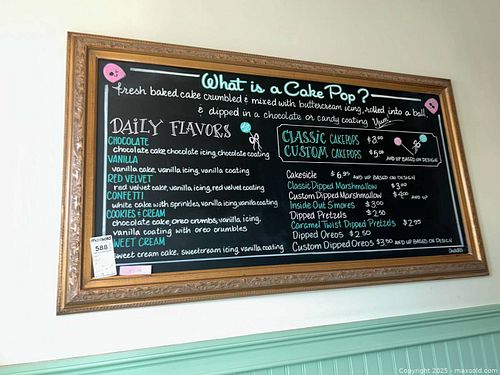 What is a Cake Pop?
fresh baked cake crumbled & mixed with buttercream icing, rolled into a ball,
& dipped in a chocolate or candy coating Yum!
DAILY FLAVORS
CHOCOLATE
chocolate cake, chocolate icing, chocolate coating
VANILLA
vanilla cake, vanilla icing, vanilla coating
RED VELVET
red velvet cake, vanilla icing, red velvet coating
CONFETTI
white cake with sprinkles, vanilla icing, vanilla coating
COOKIES & CREAM
chocolate cake, oreo crumbs, vanilla icing,
vanilla coating with oreo crumbles
SWEET CREAM
sweet cream cake, sweetcream icing, vanilla coating
CLASSIC CAKEPOPS $3.00
CUSTOM CAKEPOPS $5.00
AND UP BASED ON DESIGN
Cakesicle $6.95 AND UP BASED ON DESIGN
Classic Dipped Marshmallow $3.00
Custom Dipped Marshmallow $4.00 AND UP
Inside Out S'mores $3.00
Dipped Pretzels $2.50
Caramel Twist Dipped Pretzels $2.95
Dipped Oreos $2.50
Custom Dipped Oreos $3.50 AND UP BASED ON DESIGN
maxsold
588
Copyright 2025 - maxsold.com